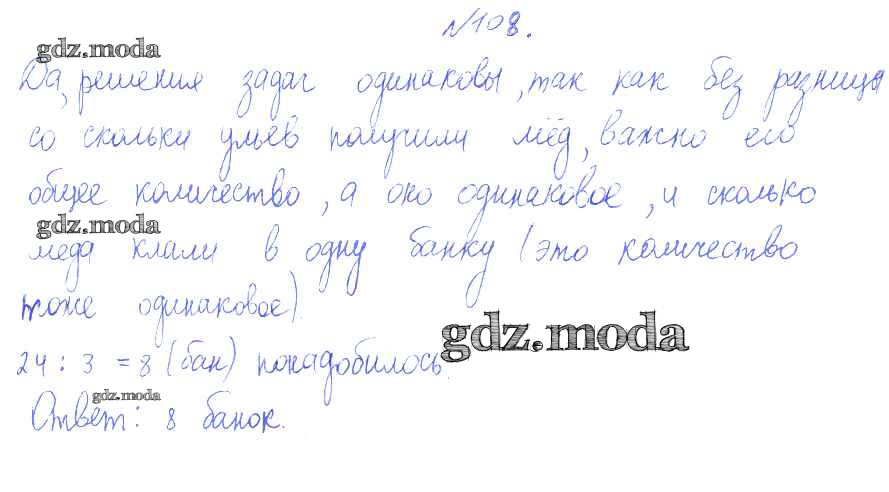 №108.
gdz.moda
Да, решения задач одинаковы, так как без разница
со скольки ульев получили мёд, важно его
общее количество, а оно одинаковое, и сколько
gdz.moda
меда клали в одну банку (это количество
тоже одинаковое).
gdz.moda
24 : 3 = 8 (бан) понадобилось.
gdz.moda
Ответ: 8 банок.